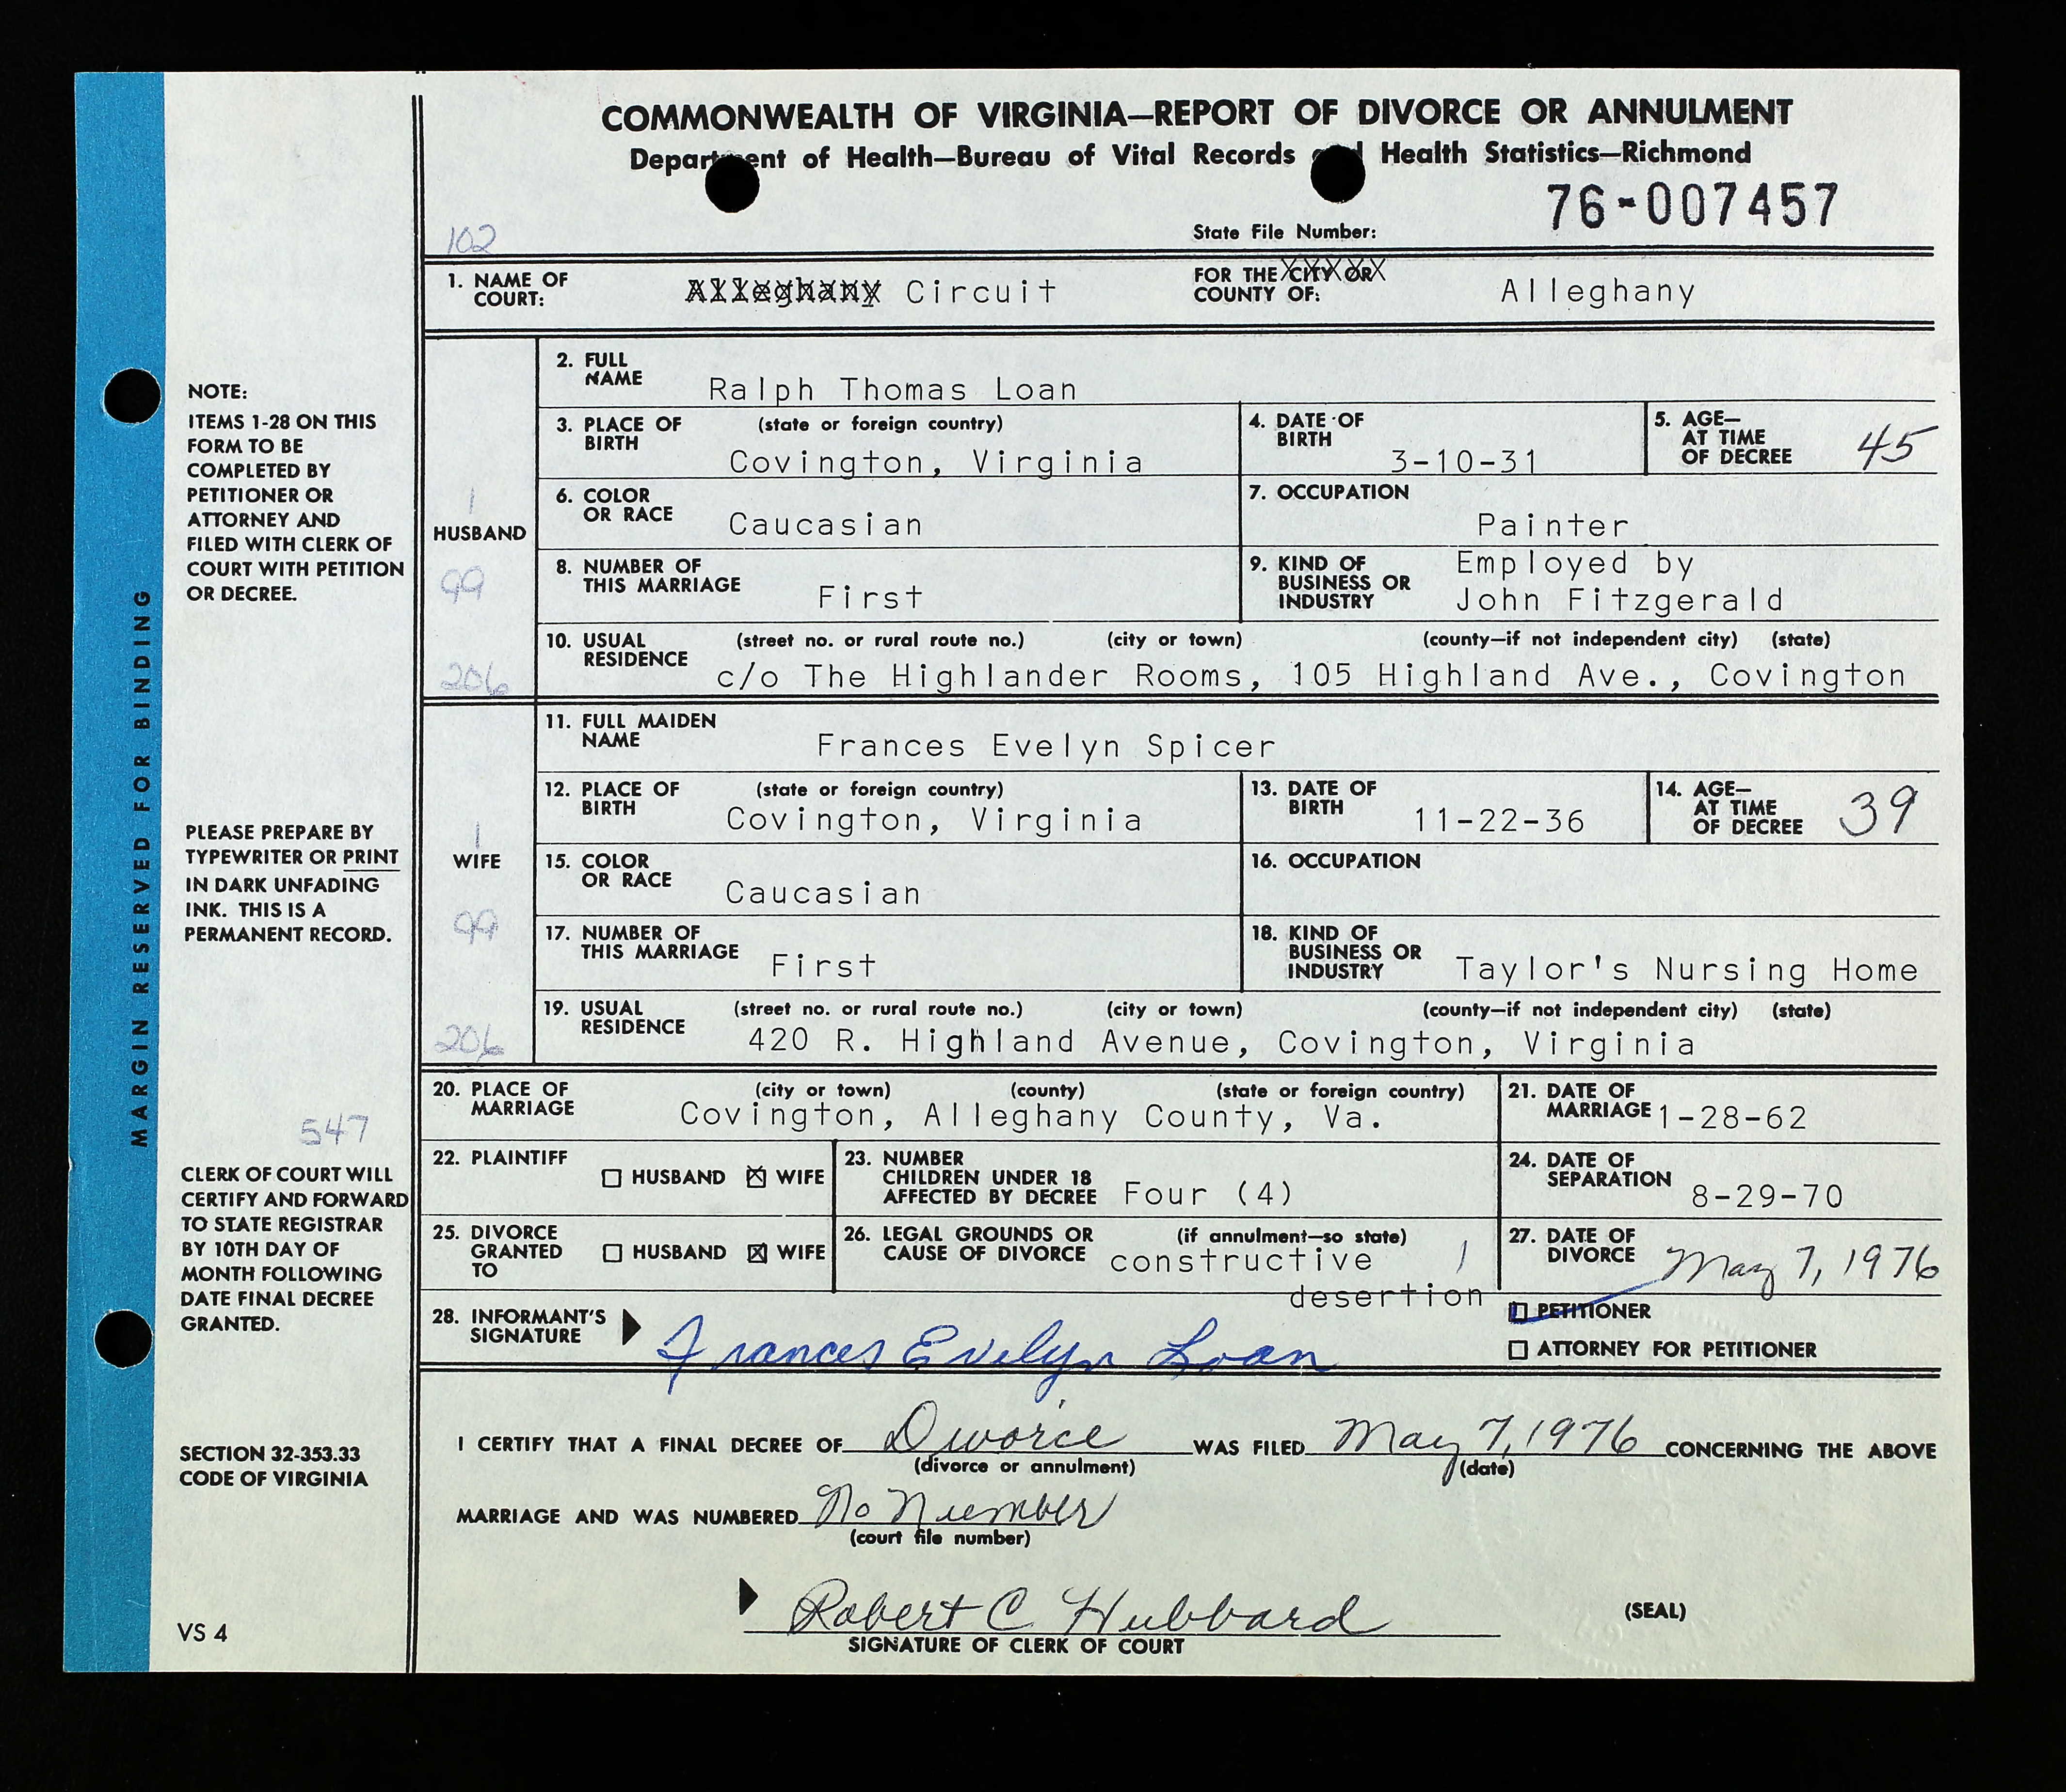 COMMONWEALTH OF VIRGINIA—REPORT OF DIVORCE OR ANNULMENT
Department of Health—Bureau of Vital Records and Health Statistics—Richmond
76-007457
102
State File Number:
1. NAME OF COURT: Alleghany Circuit FOR THE CITY OR COUNTY OF: Alleghany
HUSBAND
1
99
206
2. FULL NAME Ralph Thomas Loan
3. PLACE OF BIRTH (state or foreign country) Covington, Virginia
4. DATE OF BIRTH 3-10-31
5. AGE— AT TIME OF DECREE 45
6. COLOR OR RACE Caucasian
7. OCCUPATION Painter
8. NUMBER OF THIS MARRIAGE First
9. KIND OF BUSINESS OR INDUSTRY Employed by John Fitzgerald
10. USUAL RESIDENCE (street no. or rural route no.) (city or town) (county—if not independent city) (state)
c/o The Highlander Rooms, 105 Highland Ave., Covington
WIFE
1
99
206
11. FULL MAIDEN NAME Frances Evelyn Spicer
12. PLACE OF BIRTH (state or foreign country) Covington, Virginia
13. DATE OF BIRTH 11-22-36
14. AGE— AT TIME OF DECREE 39
15. COLOR OR RACE Caucasian
16. OCCUPATION
17. NUMBER OF THIS MARRIAGE First
18. KIND OF BUSINESS OR INDUSTRY Taylor's Nursing Home
19. USUAL RESIDENCE (street no. or rural route no.) (city or town) (county—if not independent city) (state)
420 R. Highland Avenue, Covington, Virginia
20. PLACE OF MARRIAGE (city or town) (county) (state or foreign country)
Covington, Alleghany County, Va.
21. DATE OF MARRIAGE 1-28-62
22. PLAINTIFF ☐ HUSBAND ☒ WIFE
23. NUMBER CHILDREN UNDER 18 AFFECTED BY DECREE Four (4)
24. DATE OF SEPARATION 8-29-70
25. DIVORCE GRANTED TO ☐ HUSBAND ☒ WIFE
26. LEGAL GROUNDS OR CAUSE OF DIVORCE (if annulment—so state) constructive desertion 1
27. DATE OF DIVORCE May 7, 1976
28. INFORMANT'S SIGNATURE Frances Evelyn Loan
☑ PETITIONER
☐ ATTORNEY FOR PETITIONER
I CERTIFY THAT A FINAL DECREE OF Divorce WAS FILED May 7, 1976 CONCERNING THE ABOVE
(divorce or annulment) (date)
MARRIAGE AND WAS NUMBERED No Number
(court file number)
Robert C. Hubbard
SIGNATURE OF CLERK OF COURT
(SEAL)
MARGIN RESERVED FOR BINDING
NOTE:
ITEMS 1-28 ON THIS
FORM TO BE
COMPLETED BY
PETITIONER OR
ATTORNEY AND
FILED WITH CLERK OF
COURT WITH PETITION
OR DECREE.
PLEASE PREPARE BY
TYPEWRITER OR PRINT
IN DARK UNFADING
INK. THIS IS A
PERMANENT RECORD.
547
CLERK OF COURT WILL
CERTIFY AND FORWARD
TO STATE REGISTRAR
BY 10TH DAY OF
MONTH FOLLOWING
DATE FINAL DECREE
GRANTED.
SECTION 32-353.33
CODE OF VIRGINIA
VS 4